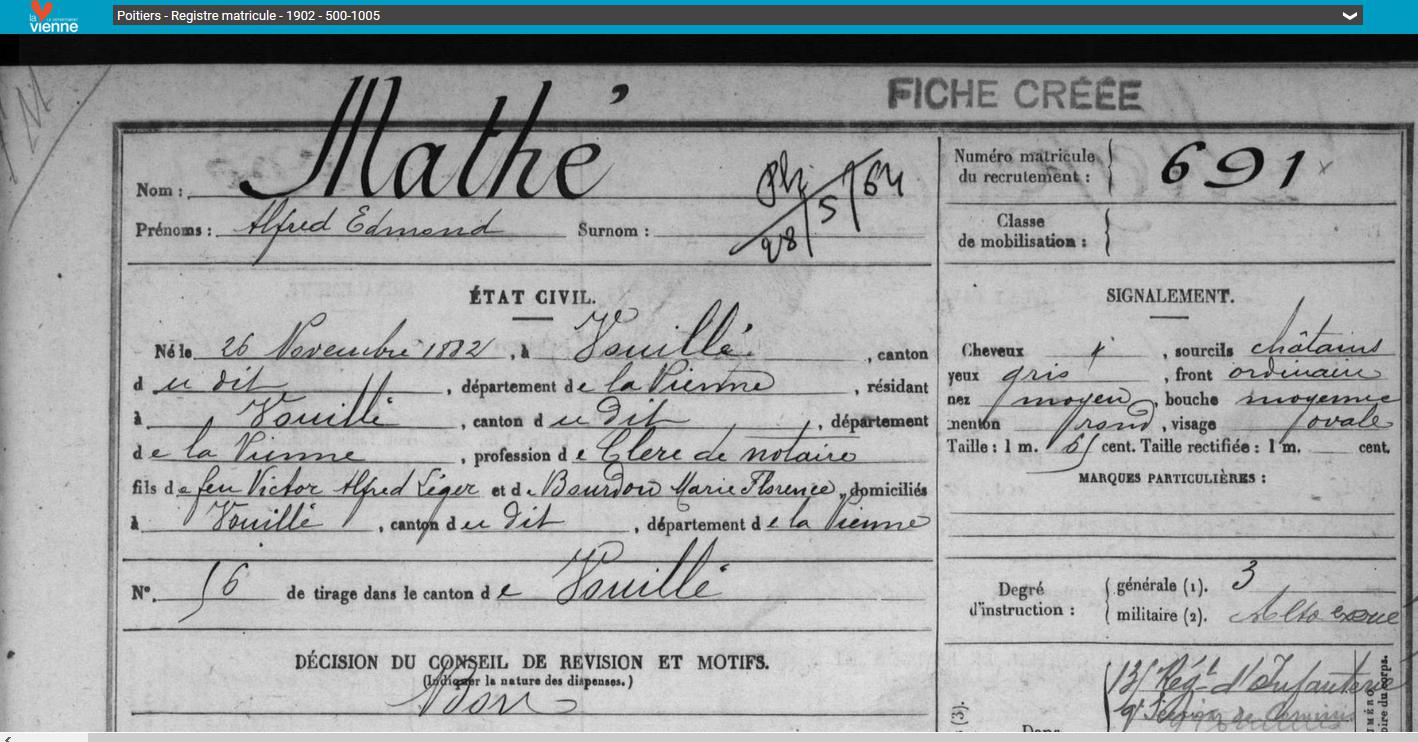 la
LE DÉPARTEMENT
vienne
Poitiers - Registre matricule - 1902 - 500-1005
FICHE CRÉÉE
Nom : Mathé
Prénoms : Alfred Edmond Surnom :
28/5/64
Numéro matricule du recrutement : 691
Classe de mobilisation :
ÉTAT CIVIL.
Né le 26 Novembre 1882, à Vouillé, canton
du dit, département de la Vienne, résidant
à Vouillé, canton du dit, département
de la Vienne, profession de Clerc de notaire
fils de feu Victor Alfred Léger et de Bourdon Marie Florence, domiciliés
à Vouillé, canton du dit, département de la Vienne
N°. 56 de tirage dans le canton de Vouillé
DÉCISION DU CONSEIL DE REVISION ET MOTIFS.
(Indiquer la nature des dispenses.)
Bon
SIGNALEMENT.
Cheveux, sourcils châtains
yeux gris, front ordinaire
nez moyen, bouche moyenne
menton rond, visage ovale
Taille : 1 m. cent. Taille rectifiée : 1 m. cent.
MARQUES PARTICULIÈRES :
Degré d'instruction : générale (1). 3
militaire (2).
135 Régt d'Infanterie
9e Section de
Dans
(3).
NUMÉRO
du corps.